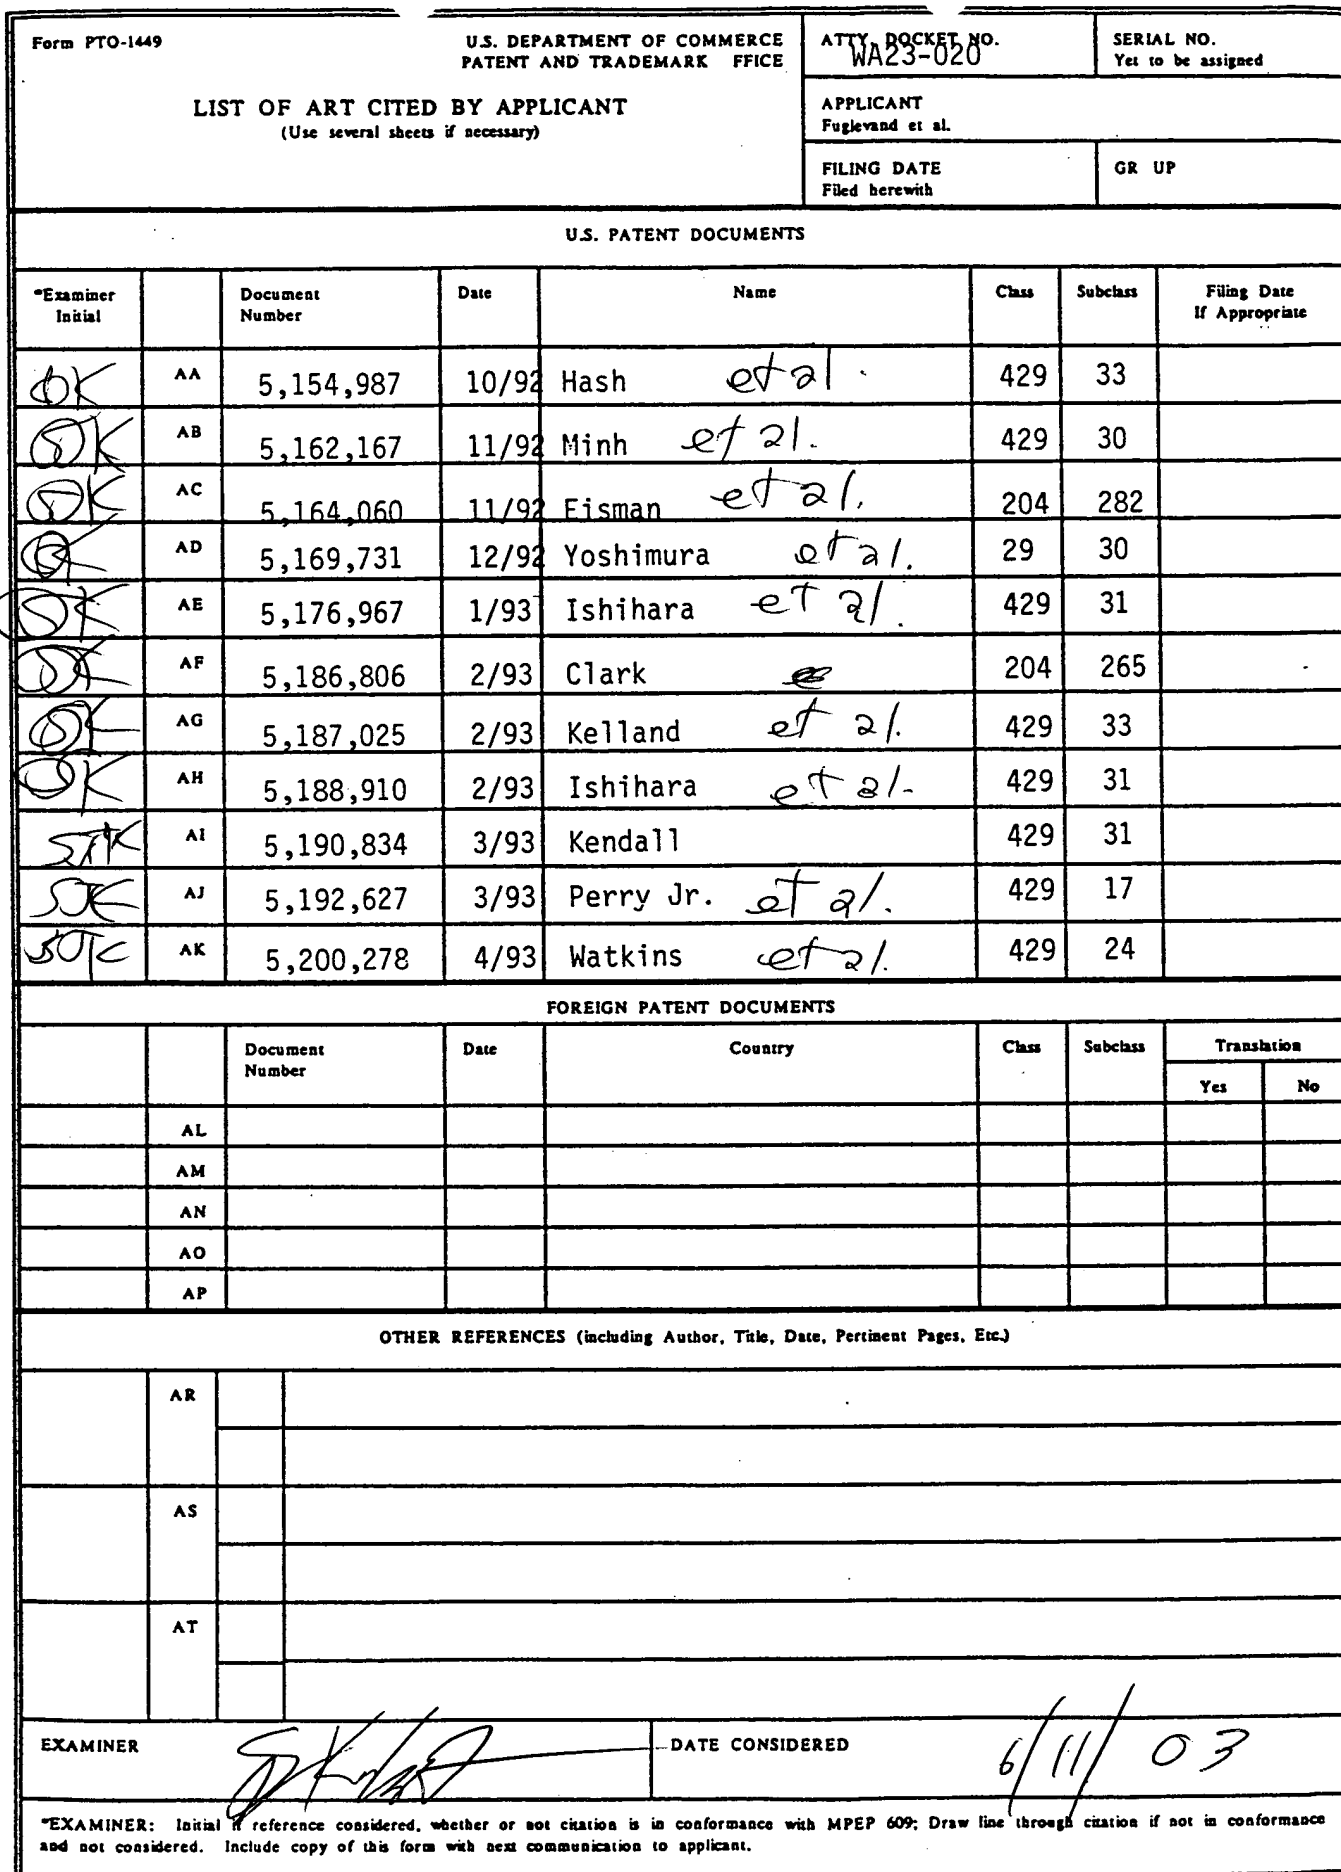 Form PTO-1449
U.S. DEPARTMENT OF COMMERCE
PATENT AND TRADEMARK FFICE
LIST OF ART CITED BY APPLICANT
(Use several sheets if necessary)
ATTY. DOCKET NO.
WA23-020
SERIAL NO.
Yet to be assigned
APPLICANT
Fuglevand et al.
FILING DATE
Filed herewith
GR UP
U.S. PATENT DOCUMENTS
*Examiner Initial Document Number Date Name Class Subclass Filing Date If Appropriate
AA 5,154,987 10/92 Hash et al. 429 33
AB 5,162,167 11/92 Minh et al. 429 30
AC 5,164,060 11/92 Eisman et al. 204 282
AD 5,169,731 12/92 Yoshimura et al. 29 30
AE 5,176,967 1/93 Ishihara et al. 429 31
AF 5,186,806 2/93 Clark 204 265
AG 5,187,025 2/93 Kelland et al. 429 33
AH 5,188,910 2/93 Ishihara et al. 429 31
AI 5,190,834 3/93 Kendall 429 31
AJ 5,192,627 3/93 Perry Jr. et al. 429 17
AK 5,200,278 4/93 Watkins et al. 429 24
FOREIGN PATENT DOCUMENTS
Document Number Date Country Class Subclass Translation
Yes No
AL
AM
AN
AO
AP
OTHER REFERENCES (including Author, Title, Date, Pertinent Pages, Etc.)
AR
AS
AT
EXAMINER DATE CONSIDERED 6/11/03
*EXAMINER: Initial if reference considered, whether or not citation is in conformance with MPEP 609; Draw line through citation if not in conformance
and not considered. Include copy of this form with next communication to applicant.